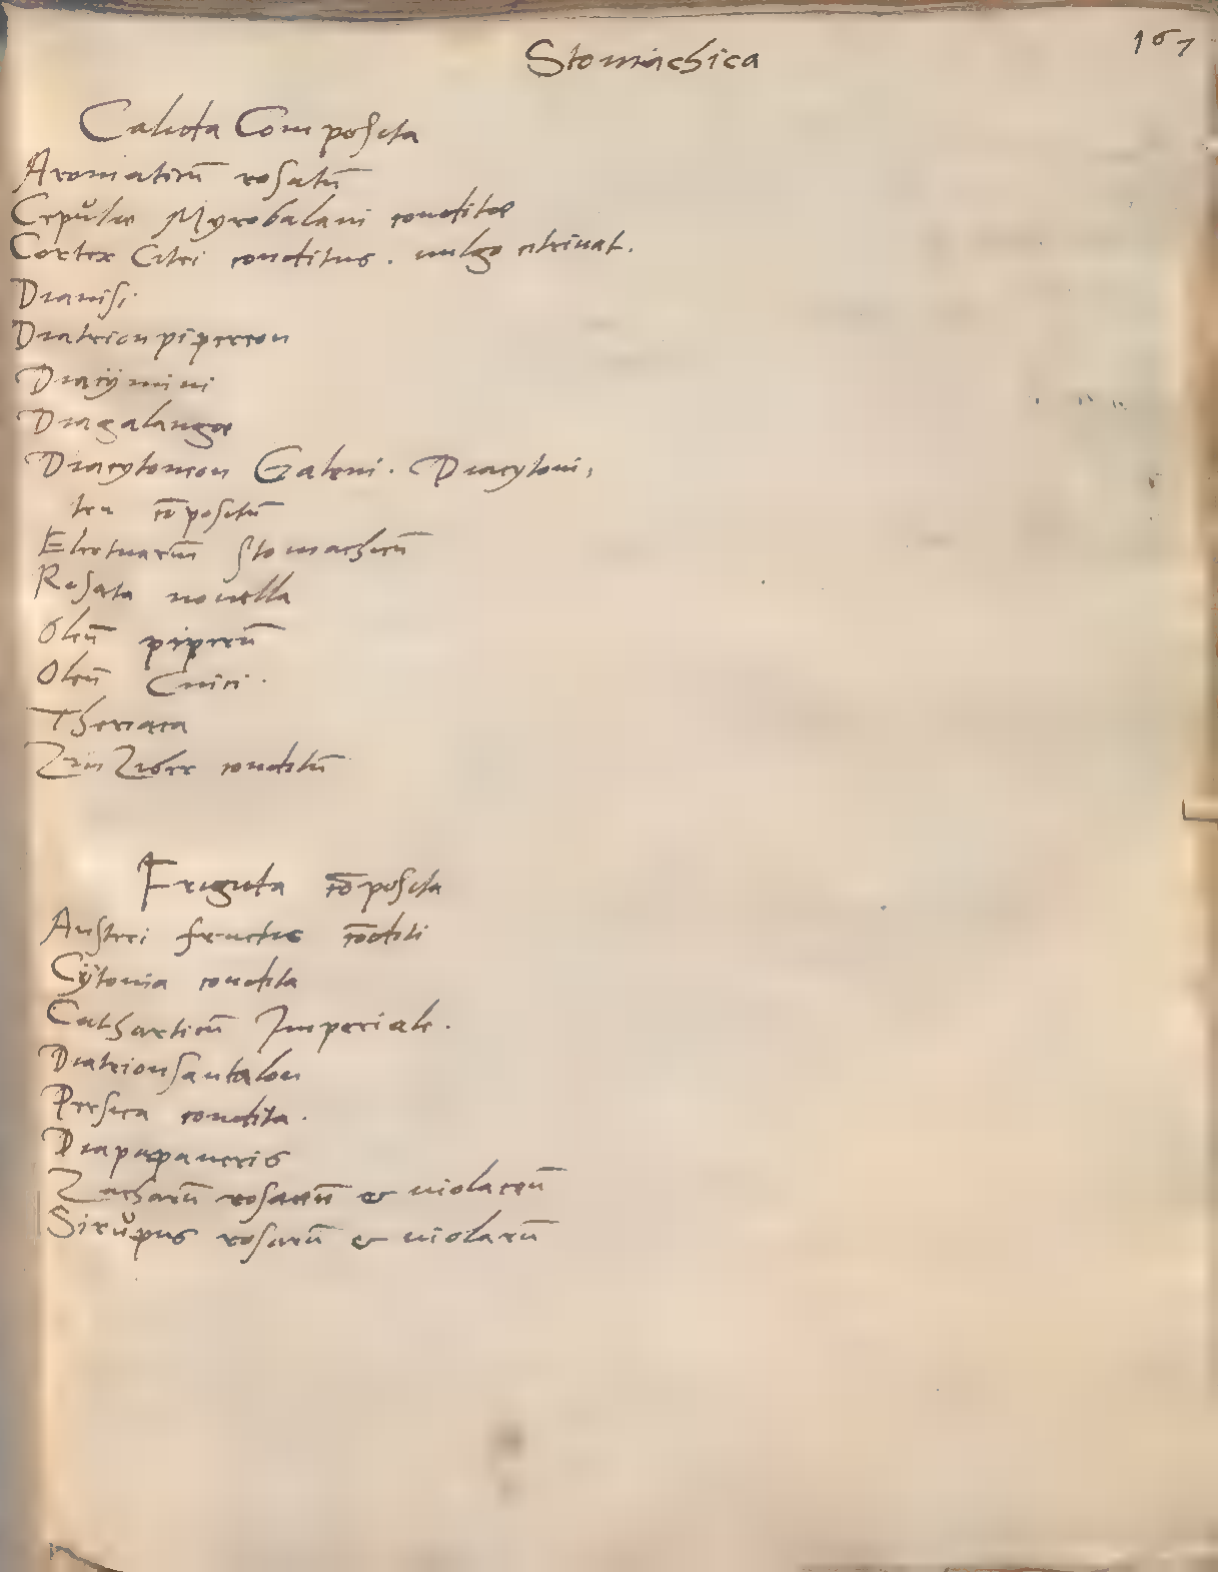 167
Stomachica
Calida Composita
Aromaticū rosatū
Cepŭlae Myrobalani conditae
Cortex Citri conditus. uulgo citrinat.
Dianisi
Diatrionpipereon
Diacÿmini
Diagalangae
Diacytoneon Galeni. Diacytoni,
ten cōpositū
Electuariū stomachicū
Rosata nouella
Oleū piperū
Oleū Cnici.
Theriaca
ZinZiber conditū
Frigida cōposita
Austeri fructus cōditi
Cÿtonia condita
Catharticū Imperiale.
Diatrionsantalon
Persica condita.
Diapapaueris
Zacharū rosaceū & uiolaceū
Sirŭpus rosarū & uiolarū